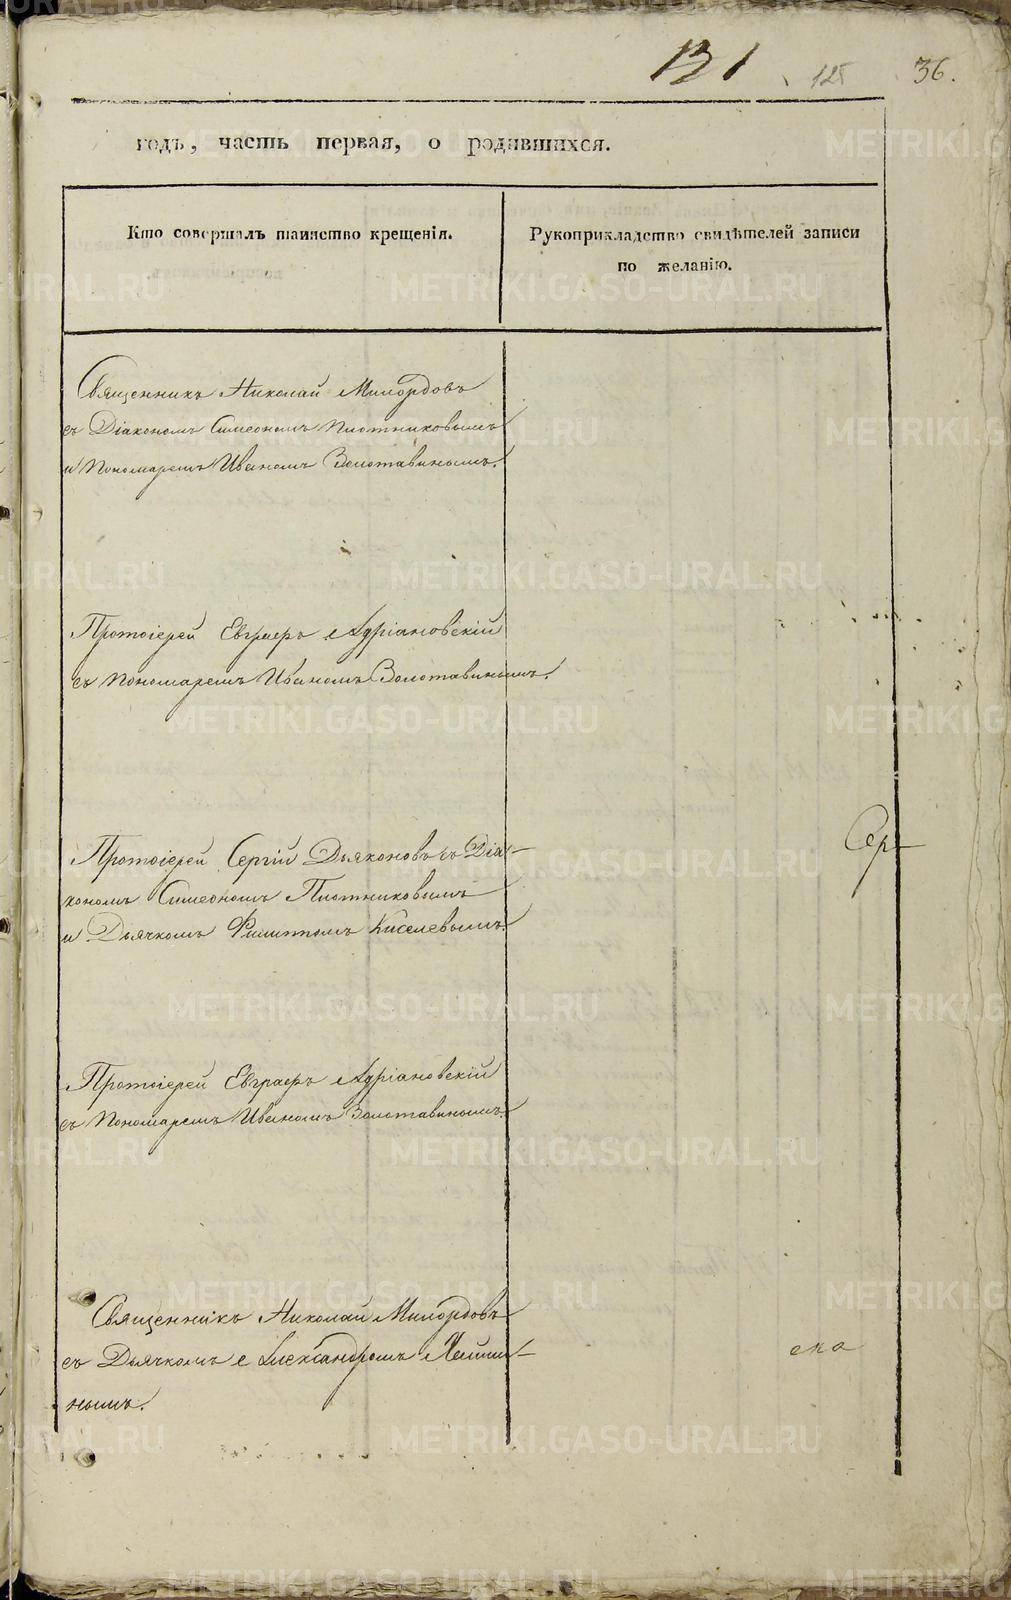 131 125 36.
годъ, часть первая, о родившихся.
Кто совершалъ таинство крещенія.
Рукоприкладство свидѣтелей записи
по желанію.
Священникъ Николай Милордовъ
съ Діакономъ Симеономъ Плотниковымъ
и Пономаремъ Иваномъ Золотавинымъ.
Протоіерей Евграфъ Адріановскій
съ Пономаремъ Иваномъ Золотавинымъ.
Протоіерей Сергій Дьяконовъ съ Діа-
кономъ Симеономъ Плотниковымъ
и Дьячкомъ Филиппомъ Киселевымъ.
Сер-
Протоіерей Евграфъ Адріановскій
съ Пономаремъ Иваномъ Золотавинымъ.
Священникъ Николай Милордовъ
съ Дьячкомъ Александромъ
нымъ.
METRIKI.GASO-URAL.RU